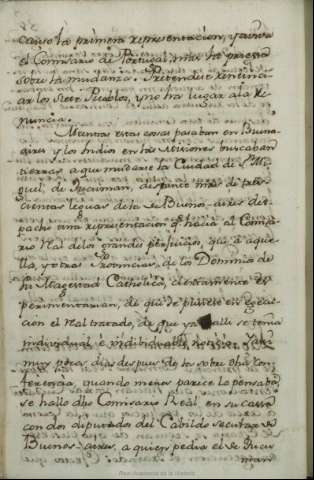 causo la primera representacion, y aunra
el Comisario de Portugal, mas ha
sobre la mudanza. Pretende
los Siete Pueblos, y no ha lugar a la Re-
nuncia.
Mientras estas cosas pasaban en Buenos
aires, y los Indios en las Misiones buscaban
tierras a que mudarse la Ciudad de Sn. Mi-
guel, de Tucuman, distante mas de tres-
cientas leguas de la de Buenos-aires des-
pacho una representacion qe. hacia al Comisa-
rio Real de los grandes perjuicios, que a aque-
lla, y otras Provincias, de los Dominios de
su Magestad Catholica, ciertamente es-
perimentarian, de que se pusiese en egecu-
cion el Real tratado, de que ya alli se tenia
individual, e indubitable noticia.
muy pocos dias despues de la sobre dha. con-
ferencia, quando menos parece lo pensaba,
se hallo dho Comisario Real en su casa
con dos diputados del Cabildo secular de
Buenos-aires, a quien pedia el de Tucu
man
Real Academia de la Historia